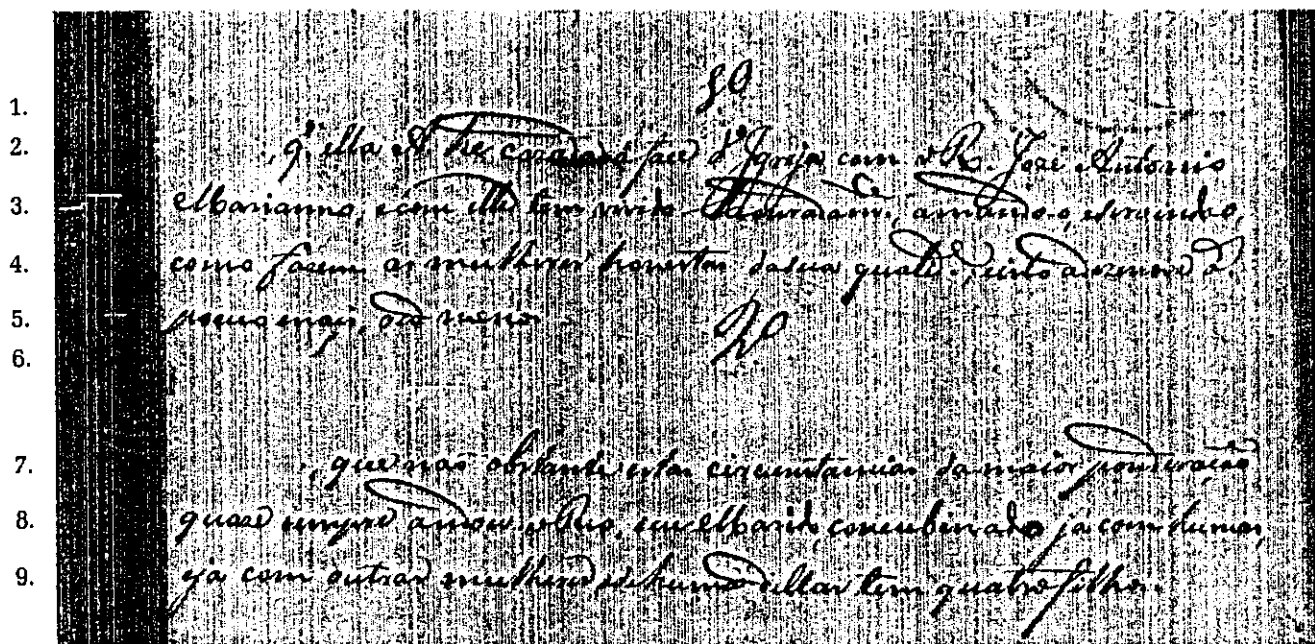 1. P.
2. , q. ella A he cazada á face d'Igreja com o R. Jozé Antonio
3. Marianno, e com elle tem vivido amando-o, e servindo-o,
4. como fazem as mulheres honestas da sua qualid.e, e isto a
5. pouco mais, ou menos
6. P.
7. , que nao obstante estas circunstancias da maior ponderacao
8. quaze sempre andou o Reo, seu Marido, concubinado já com humas,
9. e ja com outras mulheres, e de huma dellas tem quatro filhos.